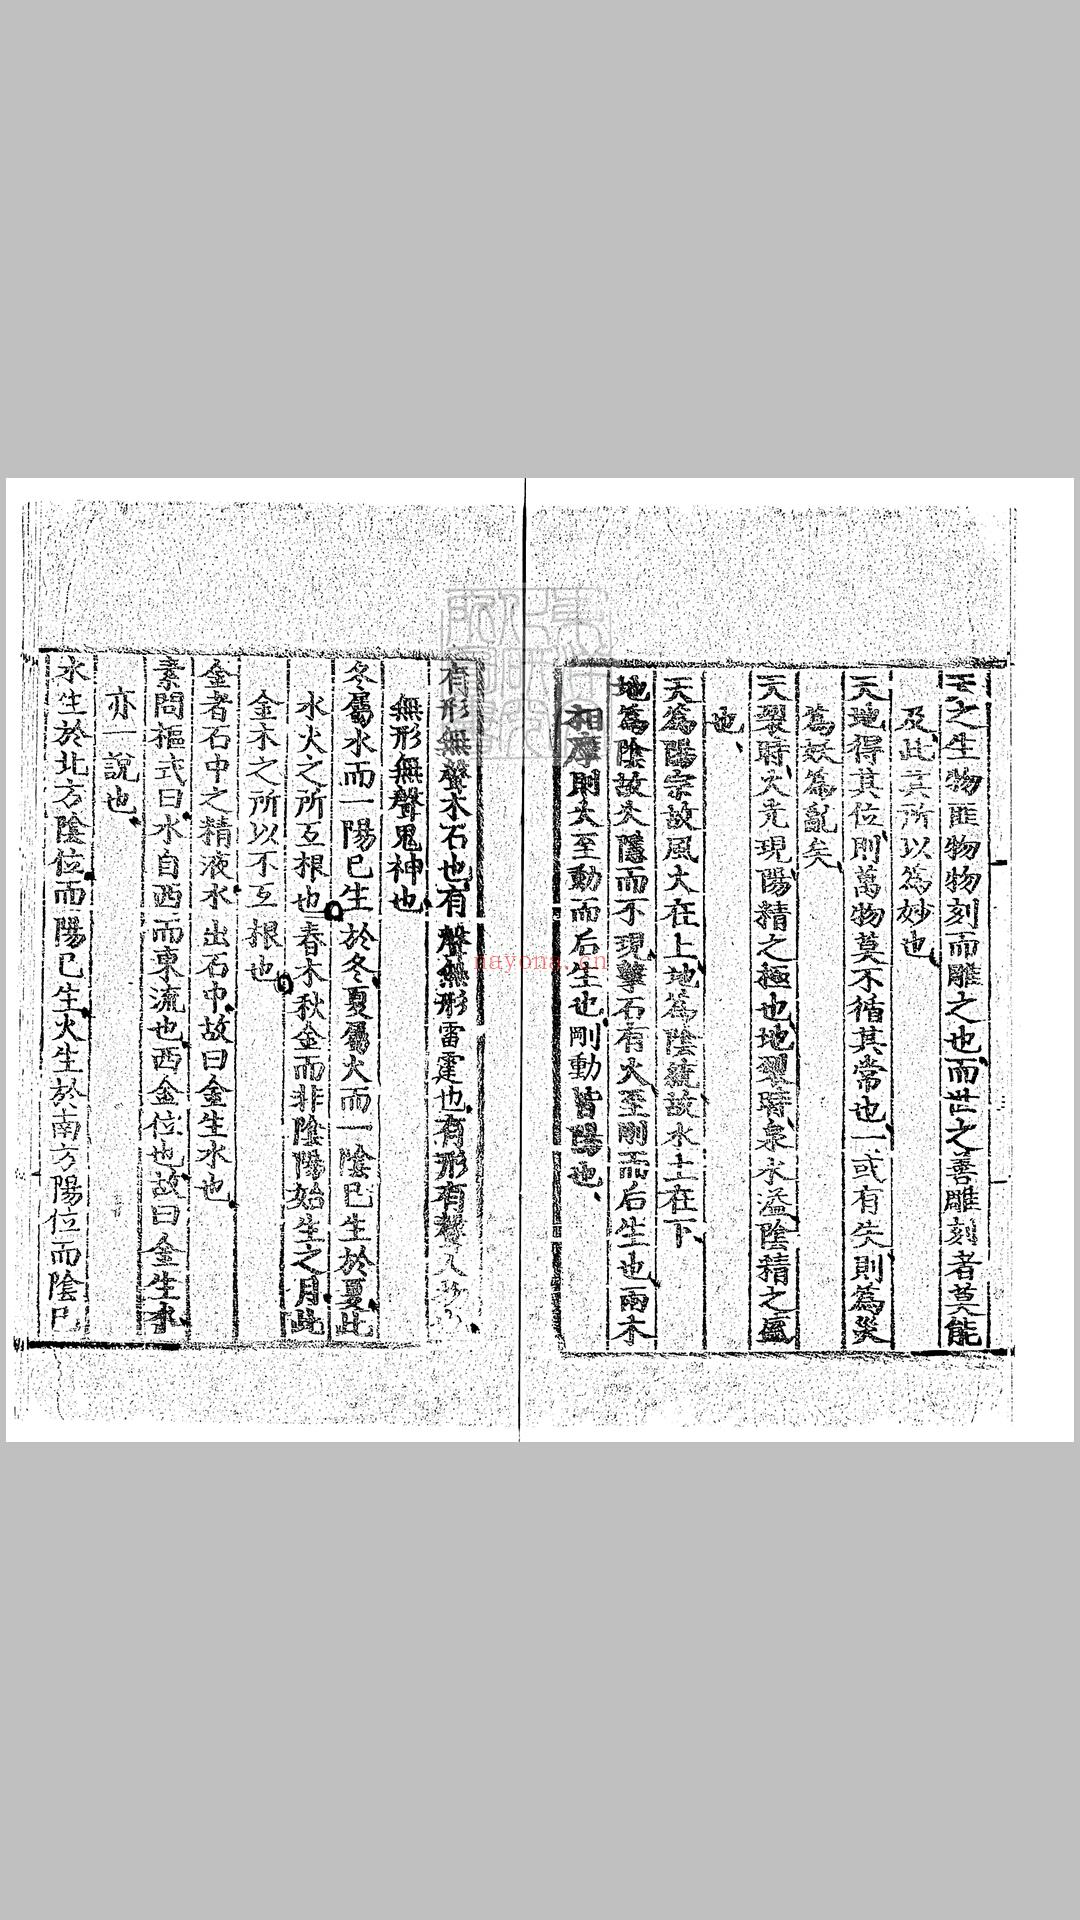 天之生物匪物物刻而雕之也而世之善雕刻者莫能
及此其所以為妙也
天地得其位則萬物莫不循其常也一或有失則為災
為妖為亂矣
天裂時火光現陽精之極也地裂時泉水溢陰精之盛
也
天為陽宗故風火在上地為陰統故水土在下
地為陰故火隱而不現擊石有火至剛而后生也兩木
相摩則火至動而后生也剛動皆陽也
有形無聲木石也有聲無形雷霆也有形有聲人物
無形無聲鬼神也
冬屬水而一陽已生於冬夏屬火而一陰已生於夏此
水火之所互根也春木秋金而非陰陽始生之月此
金木之所以不互根也
金者石中之精液水出石中故曰金生水也
素問樞式曰水自西而東流也西金位也故曰金生水
亦一說也
水生於北方陰位而陽已生火生於南方陽位而陰已
nayona.cn